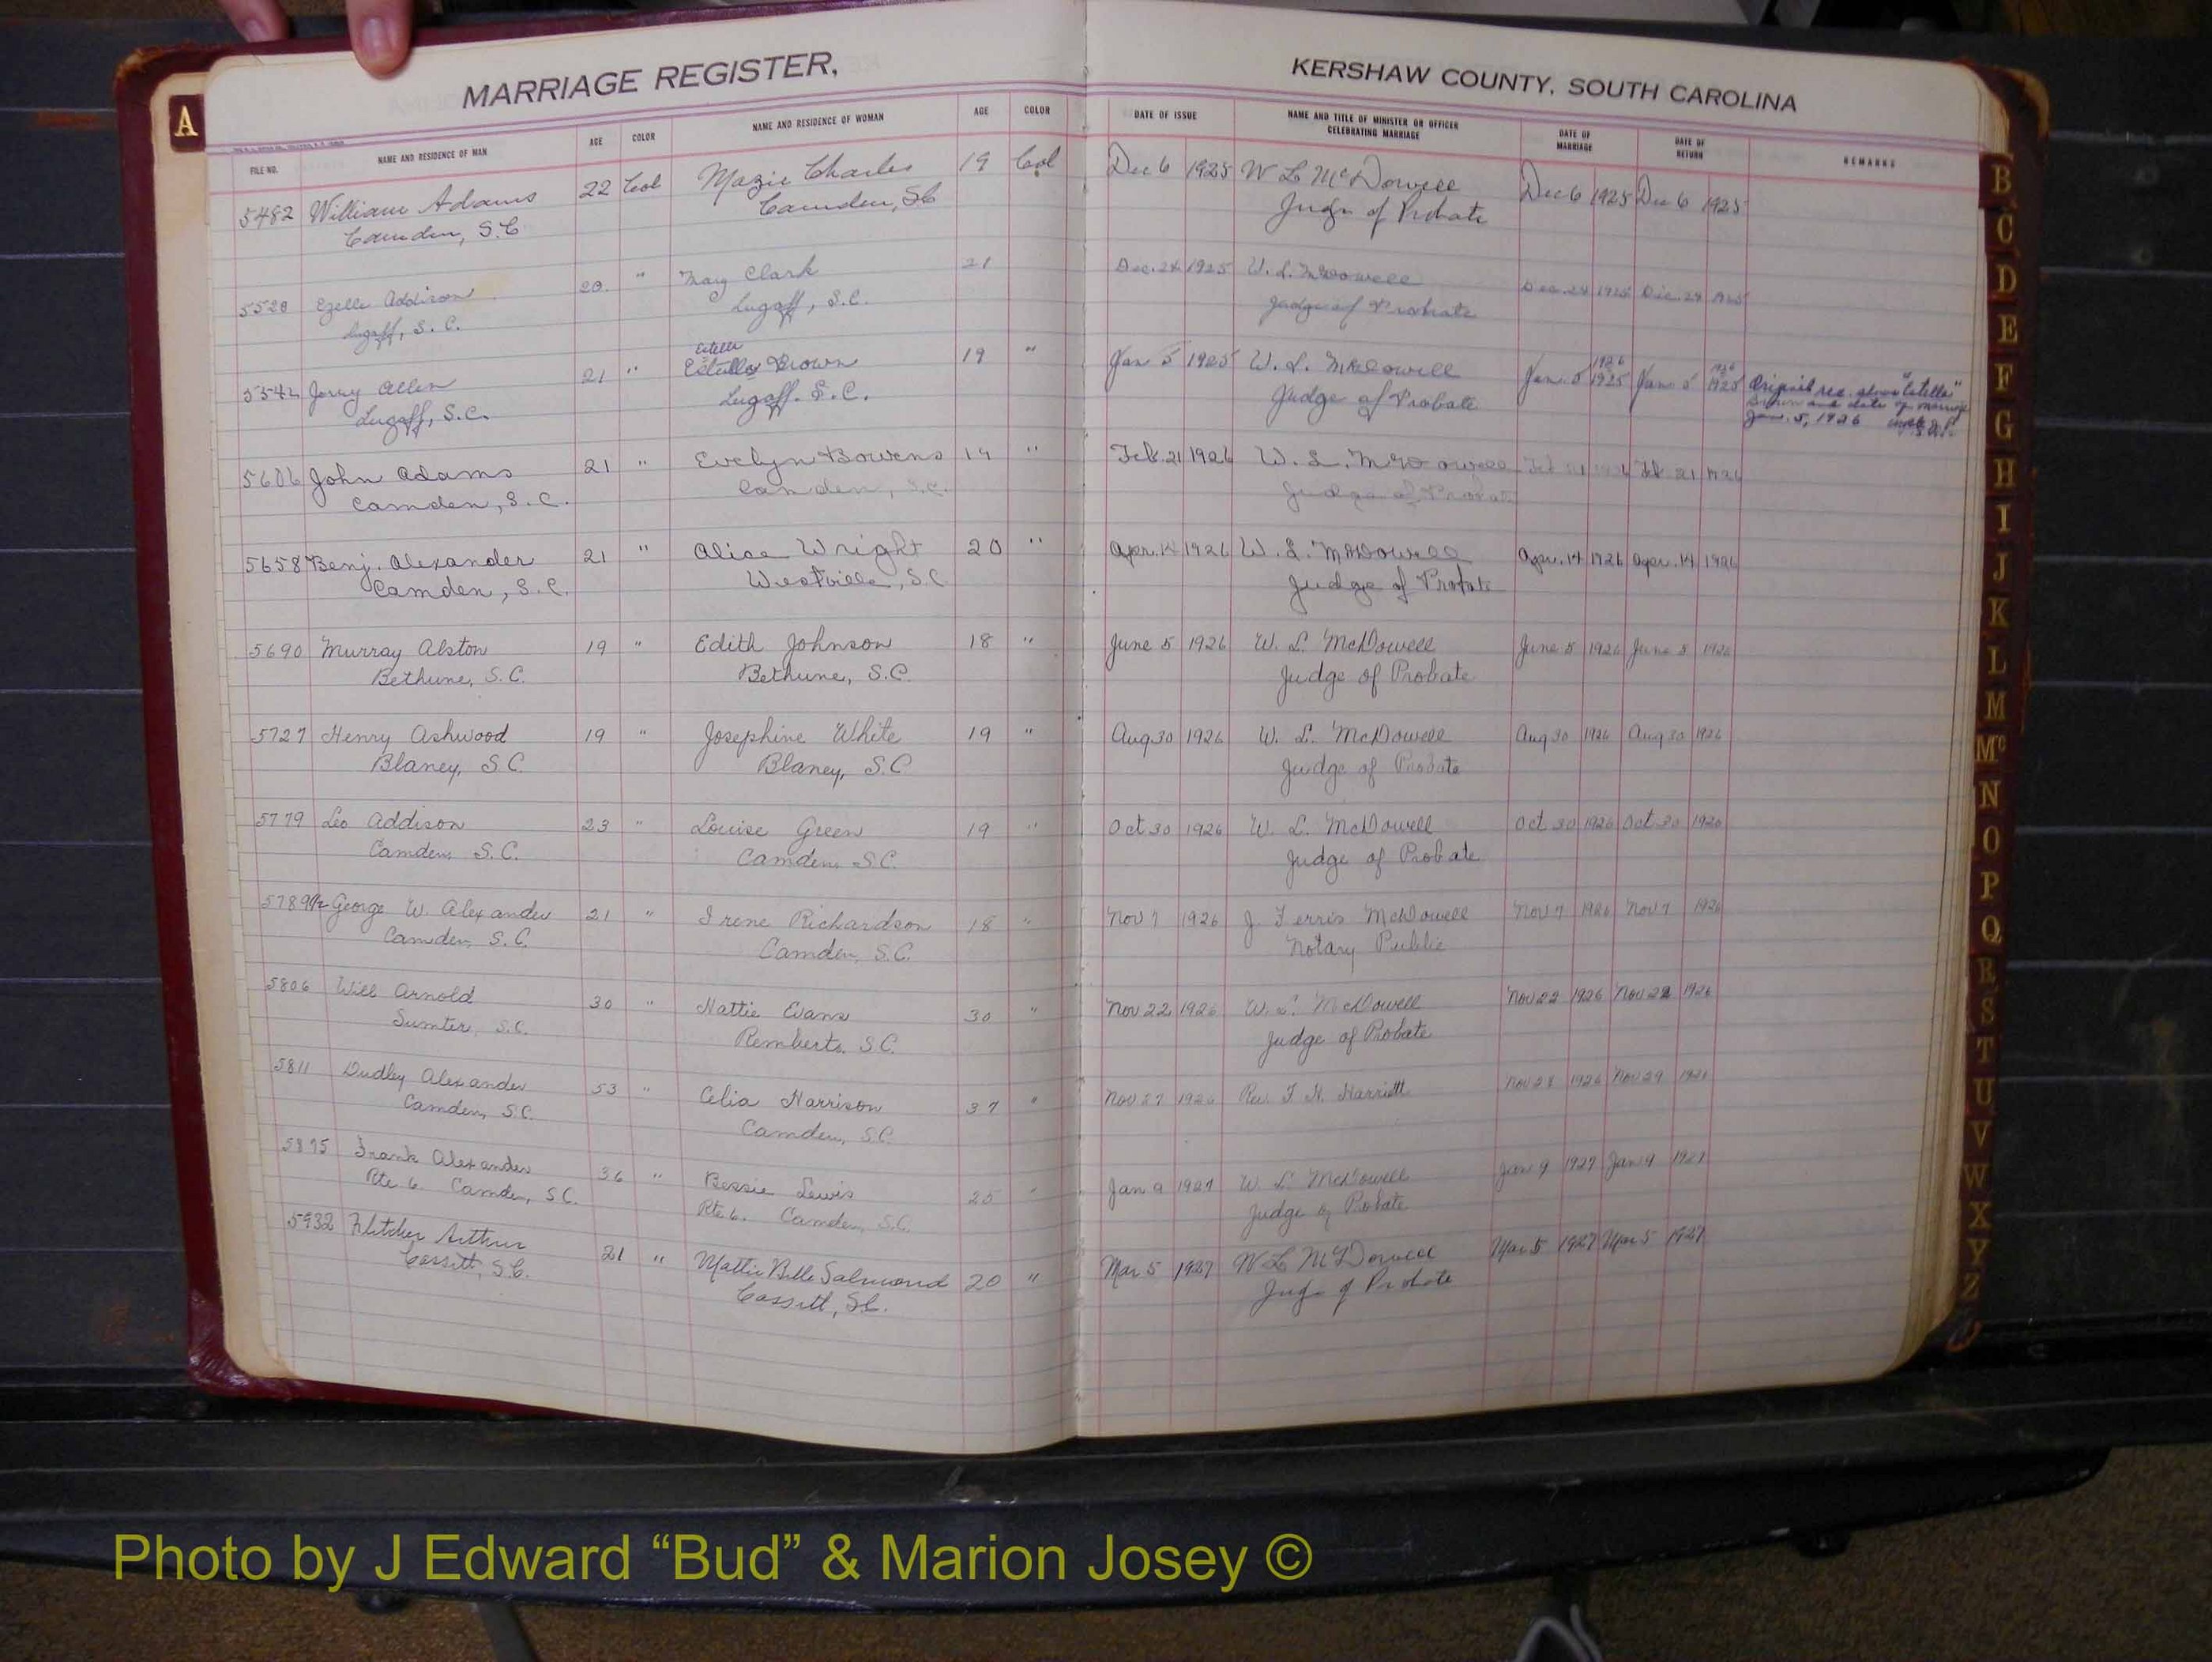 MARRIAGE REGISTER,
KERSHAW COUNTY, SOUTH CAROLINA
A
FILE NO. NAME AND RESIDENCE OF MAN AGE COLOR NAME AND RESIDENCE OF WOMAN AGE COLOR DATE OF ISSUE NAME AND TITLE OF MINISTER OR OFFICER CELEBRATING MARRIAGE DATE OF MARRIAGE DATE OF RETURN REMARKS
5482 William Adams 22 Col Mazie Charles 19 Col Dec 6 1925 W L McDowell Dec 6 1925 Dec 6 1925
Camden, S.C. Camden, SC Judge of Probate
5528 Ezelle Addison 20 " Mary Clark 21 Dec. 24 1925 W. L. McDowell Dec. 24 1925 Dec. 24 1925
Lugoff, S.C. Lugoff, S.C. Judge of Probate
Estella 1926 1926
5542 Jerry Allen 21 " Brown 19 " Jan 5 1925 W. L. McDowell Jan. 5 1925 Jan 5 1925 Original rec. shows "Estella"
Lugoff, S.C. Lugoff. S.C. Judge of Probate Brown and date of marriage
Jan. 5, 1926
5606 John Adams 21 " Evelyn Bowens " Feb. 21 1926 W. L. McDowell Feb 21 1926 Feb. 21 1926
Camden, S.C. Camden, S.C. Judge of Probate
5658 Benj. Alexander 21 " Alice Wright 20 " Apr. 14 1926 W. L. McDowell Apr. 14 1926 Apr. 14 1926
Camden, S.C. Westville, S.C Judge of Probate
5690 Murray Alston 19 " Edith Johnson 18 " June 5 1926 W. L. McDowell June 5 1926 June 5 1926
Bethune, S.C. Bethune, S.C. Judge of Probate
5727 Henry Ashwood 19 " Josephine White 19 " Aug 30 1926 W. L. McDowell Aug 30 1926 Aug 30 1926
Blaney, S.C. Blaney, S.C Judge of Probate
5779 Leo Addison 23 " Louise Green 19 " Oct 30 1926 W. L. McDowell Oct 30 1926 Oct 30 1926
Camden, S.C. Camden, S.C. Judge of Probate
5789½ George W. Alexander 21 " Irene Richardson 18 " Nov 7 1926 J. Ferris McDowell Nov 7 1926 Nov 7 1926
Camden, S.C. Camden, S.C. Notary Public
5806 Will Arnold 30 " Hattie Evans 30 " Nov 22 1926 W. L. McDowell Nov 22 1926 Nov 22 1926
Sumter, S.C. Remberts, S.C. Judge of Probate
5811 Dudley Alexander 53 " Celia Harrison 37 " Nov 27 1926 Rev. F. H. Harriett Nov 28 1926 Nov 29 1926
Camden, S.C. Camden, S.C.
5875 Frank Alexander 36 " Bessie Lewis 25 " Jan 9 1927 W. L. McDowell Jan 9 1927 Jan 9 1927
Rte. 6 Camden, S.C. Rte 6. Camden, S.C. Judge of Probate
5932 Fletcher Arthur 21 " Mattie Belle Salmond 20 " Mar 5 1927 W L McDowell Mar 5 1927 Mar 5 1927
Cassatt, S.C. Cassatt, S.C. Judge of Probate
B
C
D
E
F
G
H
I
J
K
L
M
Mc
N
O
P
Q
R
S
T
U
V
W
X
Y
Z
Photo by J Edward “Bud” & Marion Josey ©